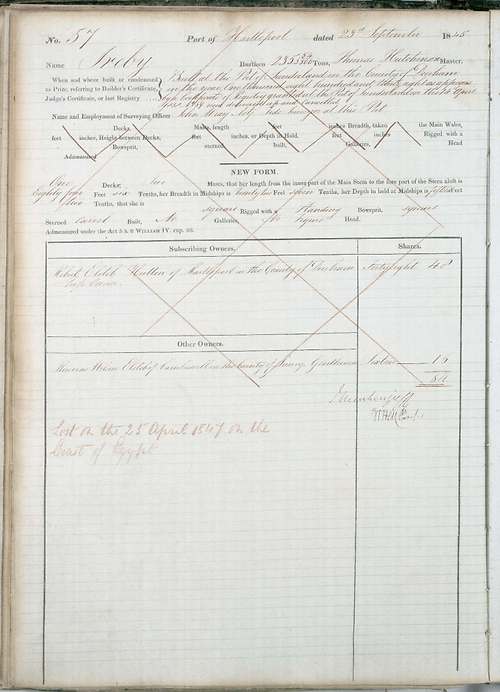 No. 57 Port of Hartlepool dated 23rd September 1845
Name Burthen 235 Tons, Thomas Hutchinson Master.
When and where built or condemned
as Prize, referring to Builder's Certificate,
Judge's Certificate, or last Registry
Built at the Port of Sunderland in the County of Durham
in the year One thousand eight hundred and thirty eight as appears
Name and Employment of Surveying Officer John at this Port
Decks, Masts, length feet inches Breadth, taken the Main Wales,
feet inches, Height between Decks, feet inches, or Depth in Hold, feet inches Rigged with a
Bowsprit, sterned built, Galleries, Head
Admeasured
NEW FORM.
One Decks; two Masts, that her length from the inner part of the Main Stem to the fore part of the Stern aloft is
Eighty four Feet six Tenths, her Breadth in Midships is Feet seven Tenths, her Depth in hold at Midships is fifteen Feet
Tenths, that she is square Rigged with a Standing Bowsprit, square
Sterned Carvel Built, No Galleries, Head.
Admeasured under the Act 5 & 6 WILLIAM IV. cap. 56.
Subscribing Owners. Shares.
Hullen of Hartlepool in the County of Durham Forty eight 48
Other Owners.
of Camberwell in the County of Surrey Gentleman Sixteen 16
64
Lost on the 25 April 1847 on the
Coast of Egypt